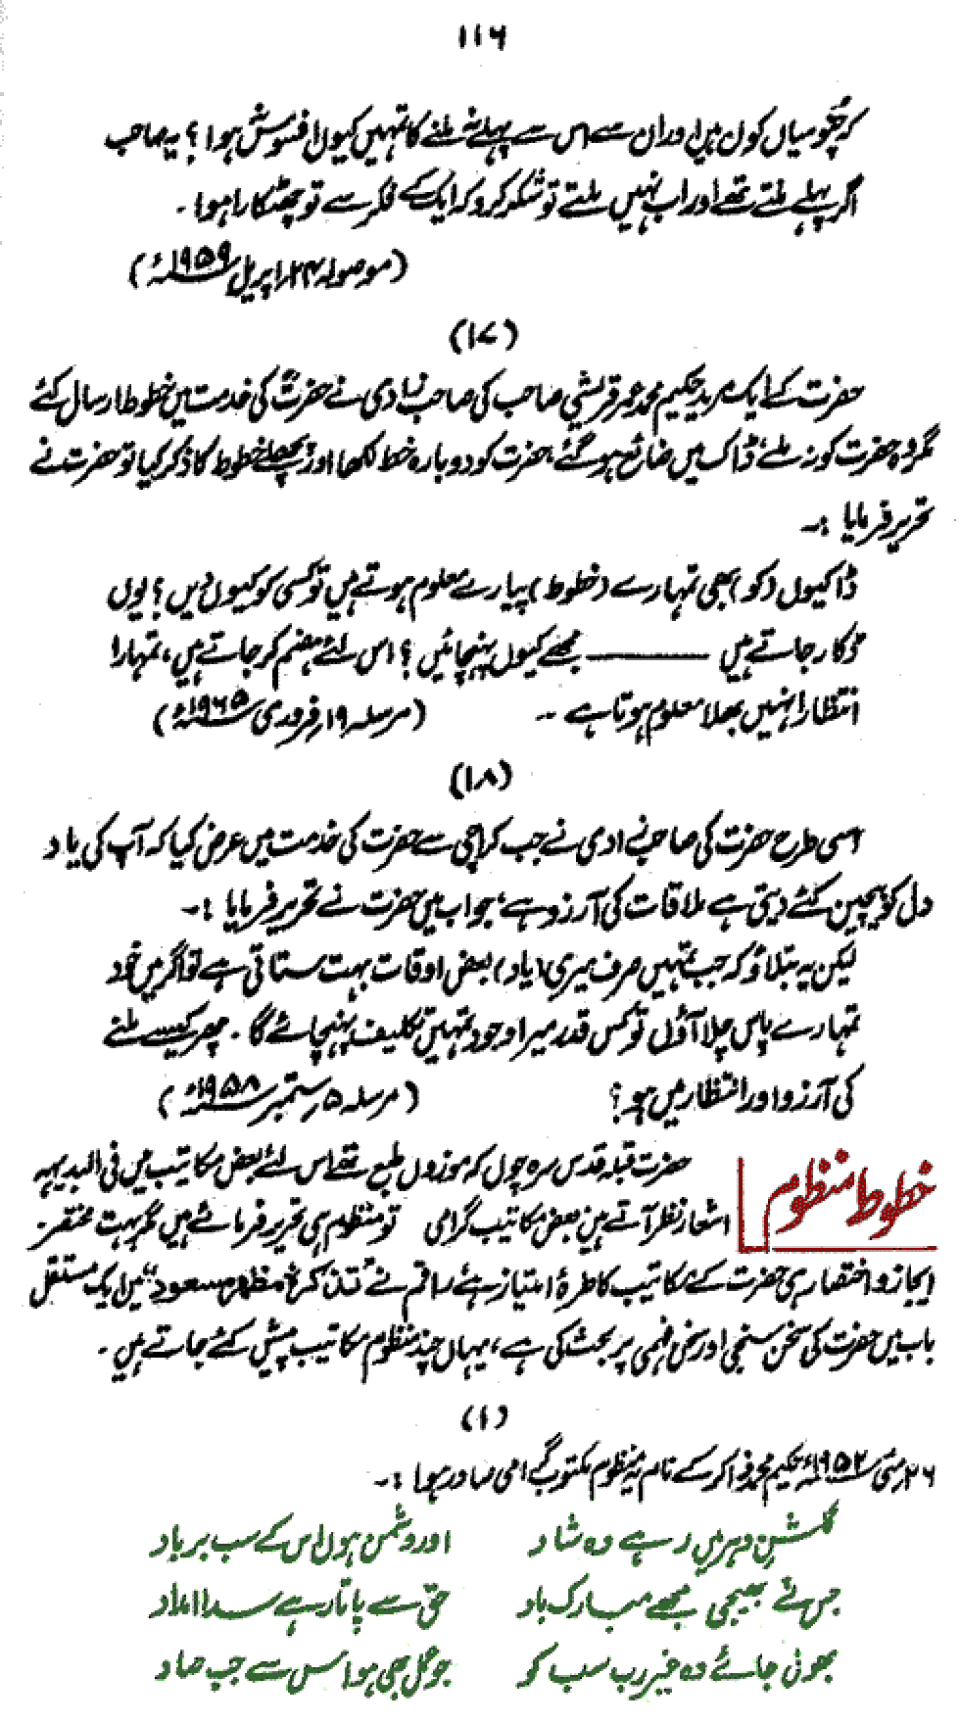 ۱۱۶
کہ چھُومیاں کون ہیں اور ان سے اس سے پہلے نہ ملنے کا تمہیں کیوں افسوس ہوا ؟ یہ صاحب
اگر پہلے ملتے تھے اور اب نہیں ملتے تو شکر کرو کہ ایک کے فکر سے تو چھٹکارا ہوا ۔
(موصولہ ۲۴؍ اپریل ۱۹۵۹ء)
(۱۷)
حضرت کے ایک مرید حکیم محمد عمر قریشی صاحب کی صاحبزادی نے حضرتؒ کی خدمت میں خطوط ارسال کئے
مگر وہ حضرت کو نہ ملے ڈاک میں ضائع ہو گئے، حضرت کو دوبارہ خط لکھا اور پچھلے خطوط کا ذکر کیا تو حضرت نے
تحریر فرمایا :۔
ڈاکیوں (کو) بھی تمہارے (خطوط) پیارے معلوم ہوتے ہیں تو کسی کو کیوں دیں ؟ یوں
ڈکار جاتے ہیں ——— مجھے کیوں پہنچائیں ؟ اس لئے ہضم کر جاتے ہیں، تمہارا
انتظار انہیں بھلا معلوم ہوتا ہے ۔۔ (مرسلہ ۱۹؍ فروری ۱۹۶۵ء)
(۱۸)
اسی طرح حضرت کی صاحبزادی نے جب کراچی سے حضرت کی خدمت میں عرض کیا کہ آپ کی یاد
دل کو بیچین کئے دیتی ہے ملاقات کی آرزو ہے، جواب میں حضرت نے تحریر فرمایا :۔
لیکن یہ بتلاؤ کہ جب تمہیں صرف میری (یاد) بعض اوقات بہت ستاتی ہے تو اگر میں خود
تمہارے پاس چلا آؤں تو کس قدر میرا وجود تمہیں تکلیف پہنچائے گا ۔ پھر کیسے ملنے
کی آرزو اور انتظار میں ہو ؟ (مرسلہ ۵؍ ستمبر ۱۹۵۸ء)
خطوط منظوم
حضرت قبلہ قدس سرہ چوں کہ موزوں طبع تھے اس لئے بعض مکاتیب میں فی البدیہہ
اشعار نظر آتے ہیں بعض مکاتیب گرامی تو منظوم ہی تحریر فرمائے ہیں مگر بہت مختصر ۔
ایجاز و اختصار ہی حضرت کے مکاتیب کا طرۂ امتیاز ہے، راقم نے "تذکرۂ مظہر مسعود" میں ایک مستقل
باب میں حضرت کی سخن سنجی اور سخن فہمی پر بحث کی ہے، یہاں چند منظوم مکاتیب پیش کئے جاتے ہیں ۔
(۱)
۲۶؍ مئی ۱۹۵۲ء حکیم محمد ذاکر کے نام یہ منظوم مکتوب گرامی صادر ہوا :۔
گلشنِ دہر میں رہے وہ شاد اور دشمن ہوں اس کے سب برباد
جس نے بھیجی مجھے مبارک باد حق سے پاتا رہے سدا امداد
بھوئی جائے وہ خیر رب سب کو جو عمل بھی ہو اس سے جب صاد